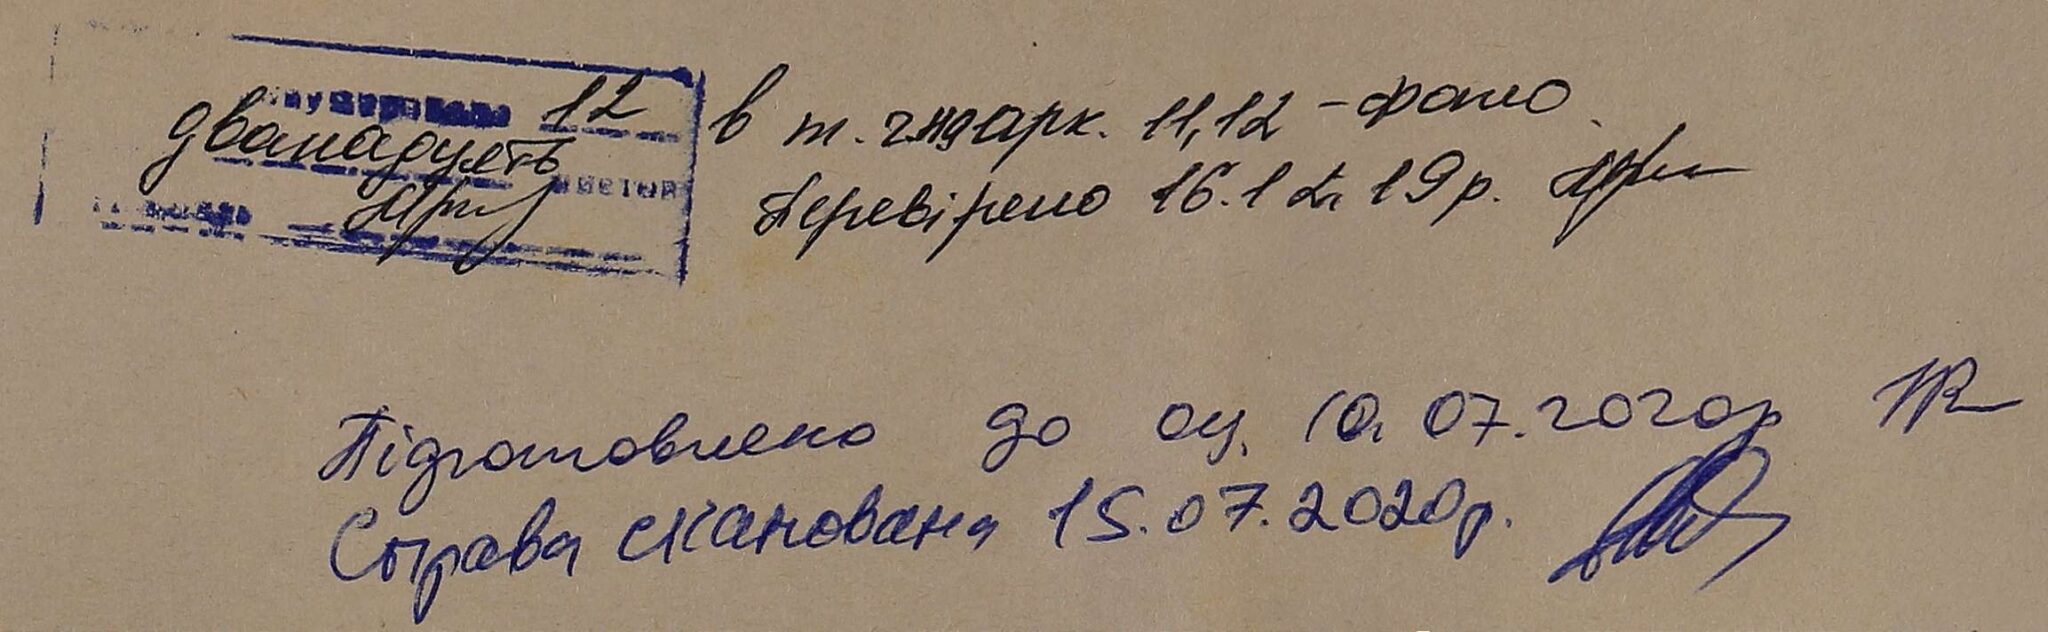 12 в т. ч. арк. 11, 12 - фото.
дванадцять
Перевірено 16.12.19 р.
Підготовлено до оц. 10.07.2020р
Справа сканована 15.07.2020р.